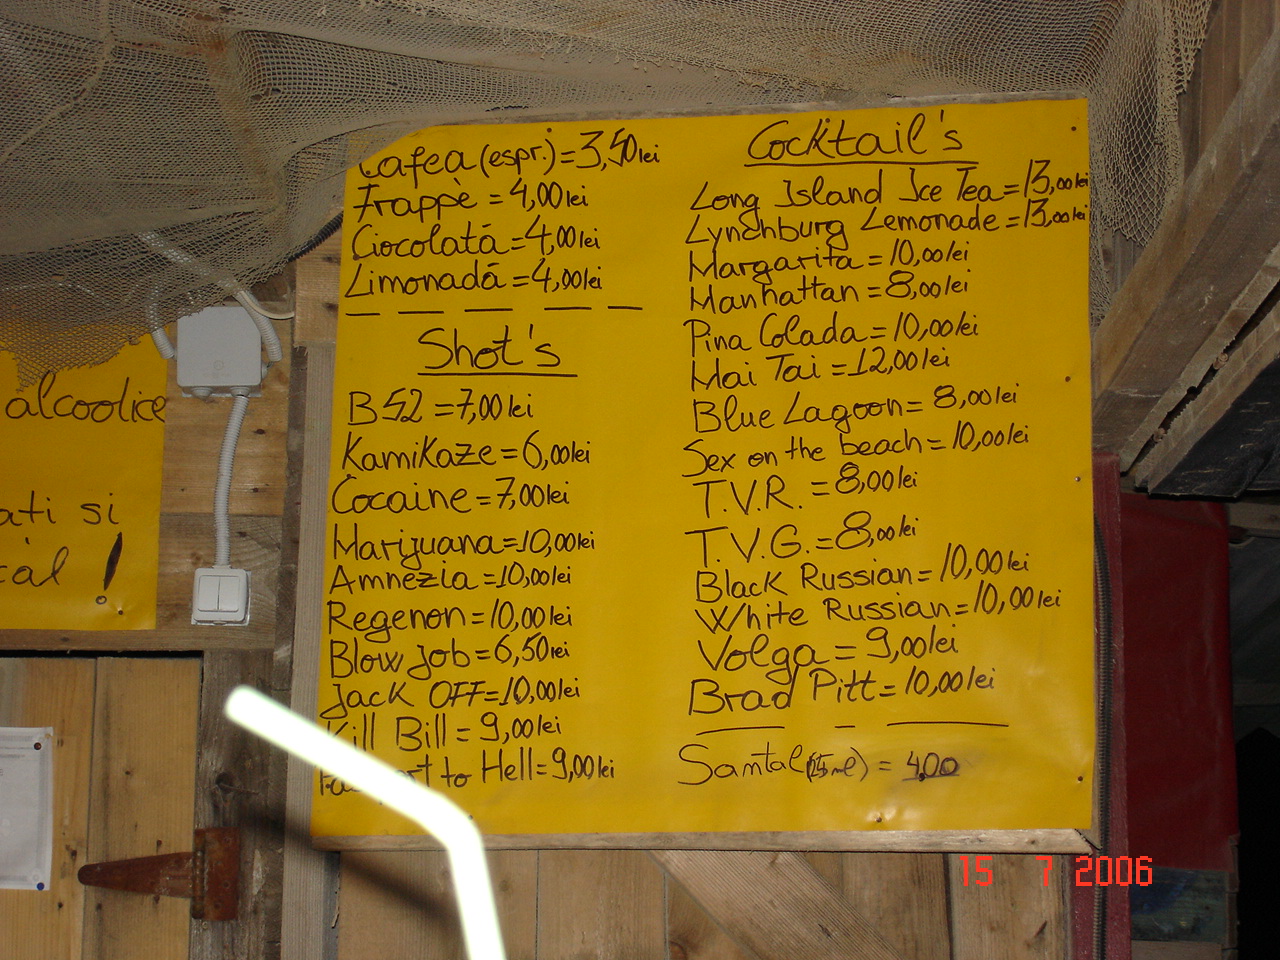 Cafea (espr.) = 3,50 lei
Frappè = 4,00 lei
Ciocolată = 4,00 lei
Limonadă = 4,00 lei
Shot's
B52 = 7,00 lei
Kamikaze = 6,00 lei
Cocaine = 7,00 lei
Marijuana = 10,00 lei
Amnezia = 10,00 lei
Regenon = 10,00 lei
Blow job = 6,50 lei
Jack OFF = 10,00 lei
Kill Bill = 9,00 lei
to Hell = 9,00 lei
Cocktail's
Long Island Ice Tea = 13,00 lei
Lynchburg Lemonade = 13,00 lei
Margarita = 10,00 lei
Manhattan = 8,00 lei
Pina Colada = 10,00 lei
Mai Tai = 12,00 lei
Blue Lagoon = 8,00 lei
Sex on the beach = 10,00 lei
T.V.R. = 8,00 lei
T.V.G. = 8,00 lei
Black Russian = 10,00 lei
White Russian = 10,00 lei
Volga = 9,00 lei
Brad Pitt = 10,00 lei
Samtal (25 ml) = 4,00
alcoolice
ați si
!
15 7 2006